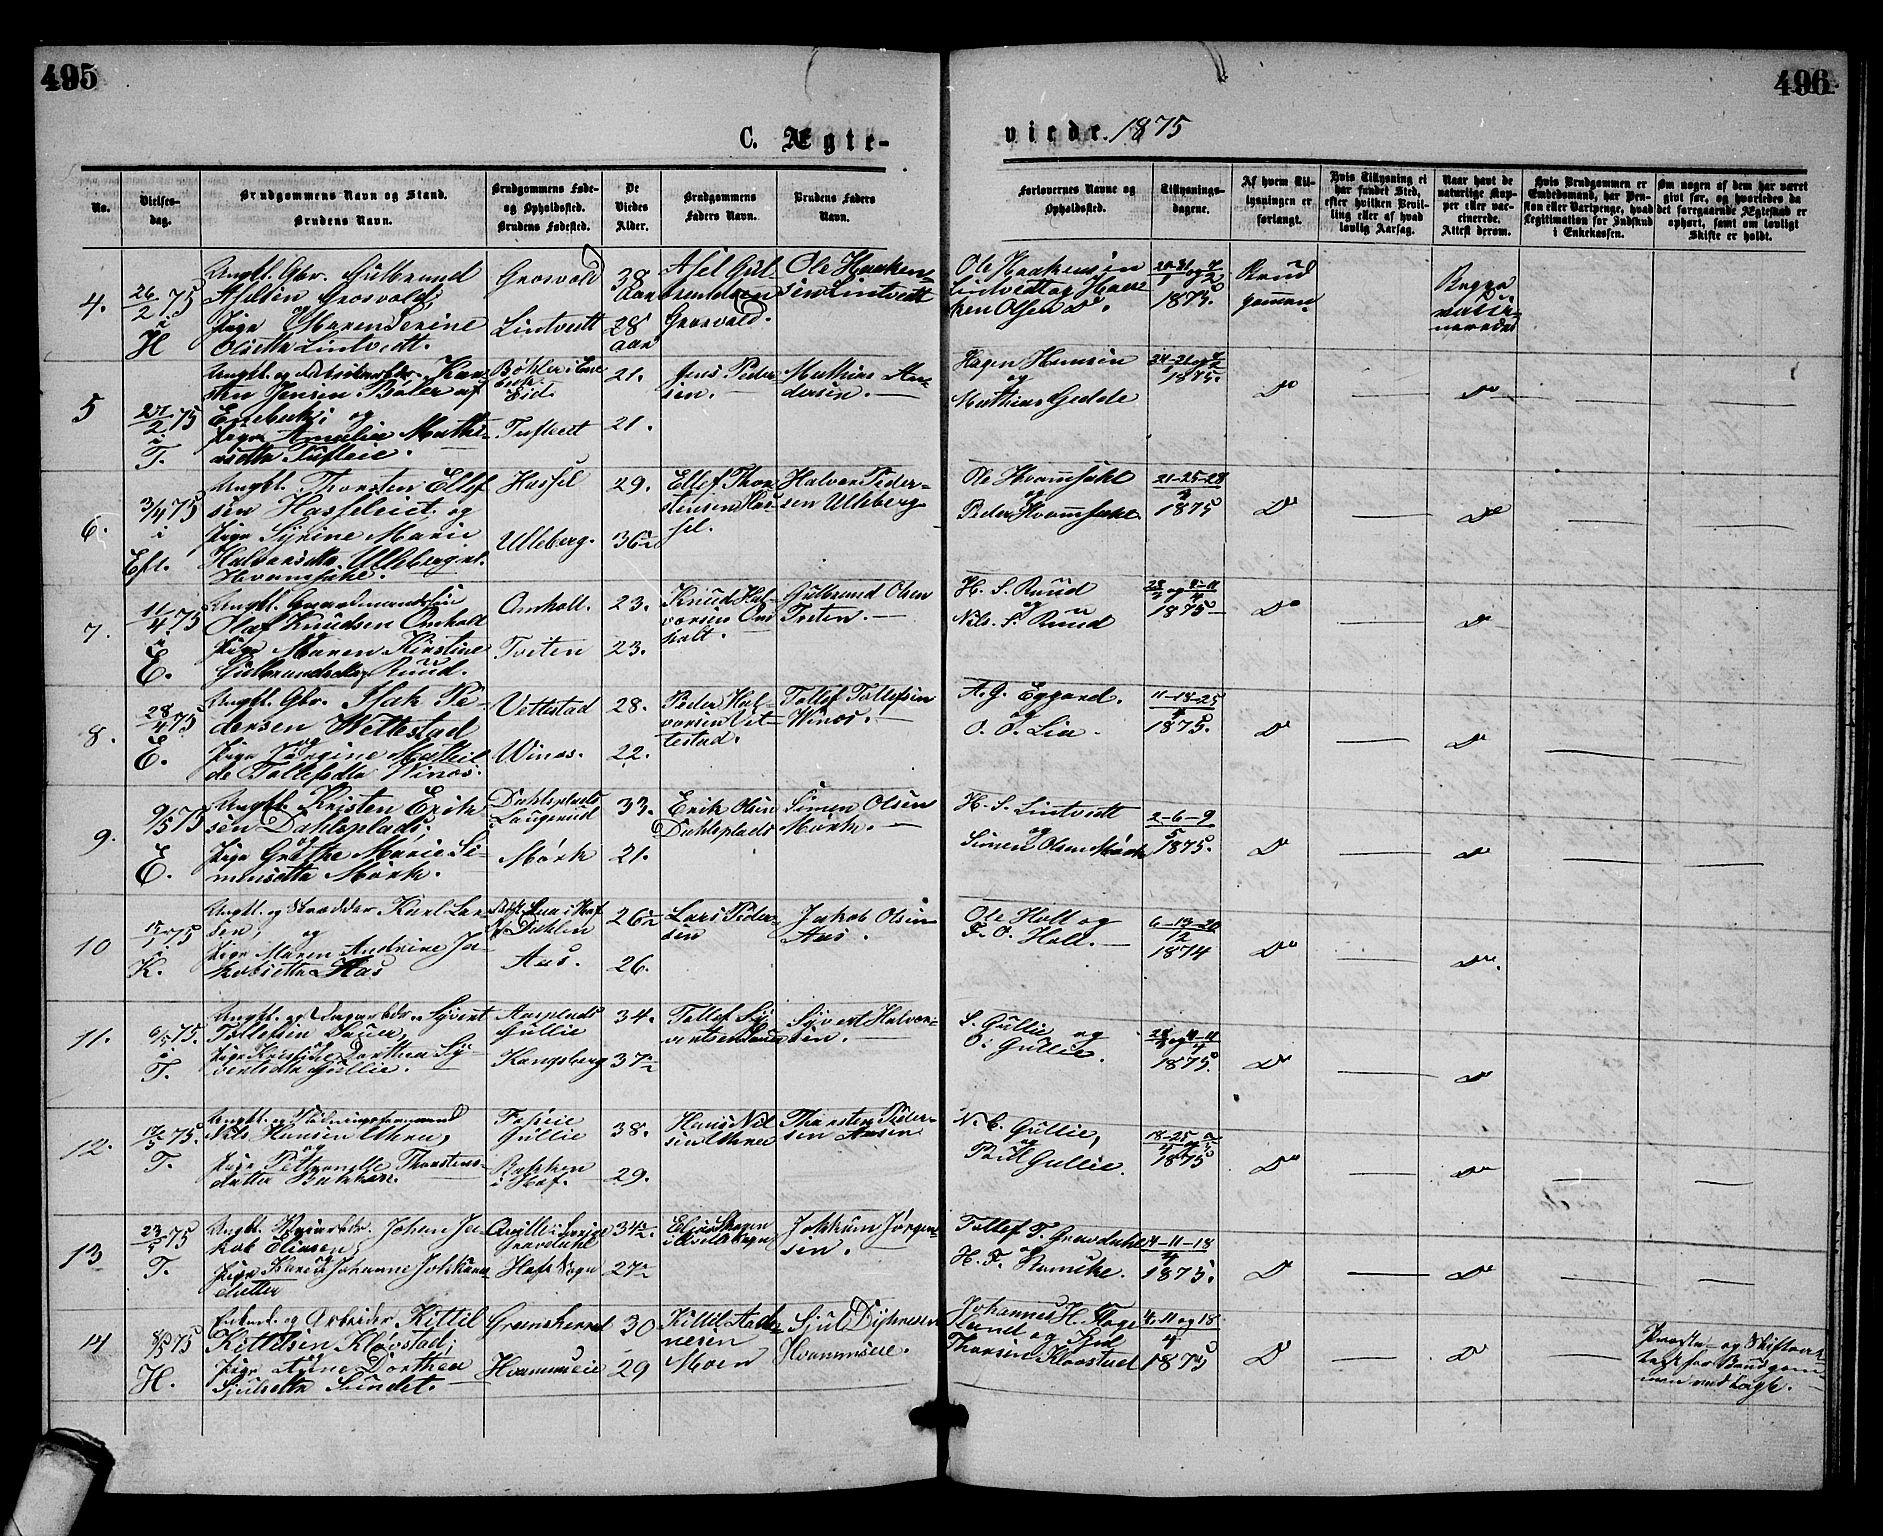 495
496.
C. Ægte-
viede. 1875
No.
Vielses-
dag.
Brudgommens Navn og Stand.
Brudens Navn.
Brudgommens Føde-
og Opholdssted.
Brudens Fødested.
De
Viedes
Alder.
Brudgommens
Faders Navn.
Brudens Faders
Navn.
Forlovernes Navne og
Opholdssted.
Tillysnings-
dagene.
Af hvem Til-
lysningen er
forlangt.
Hvis Tillysning ei
har fundet Sted,
efter hvilken Bevil-
ling eller af hvad
lovlig Aarsag.
Naar havt de
naturlige Kop-
per eller vac-
cinerede.
Attest derom.
Hvis Brudgommen er
Embedsmand, har Pen-
sion eller Vartpenge, hvad
Legitimation for Indskud
i Enkekassen.
Om nogen af dem har været
gift før, og hvorledes da
det foregaaende Ægteskab er
ophørt, samt om lovligt
Skifte er holdt.
4.
26/2 75
i
H
Ungk. Gbr. Gulbrand
Axelsen Grosvold;
Pige Maren Serine
Olsdtr Lintvedt.
Grosvold
Lintvedt
38
Aar
28
aar
Axel Gul-
brandsen
Grosvold.
Ole Haaken-
sen Lintvedt
Ole Haakensen
Lintvedt og Haa-
ken Olsen do.
1875.
Brud
gommen
Begge
vacci-
nerede
5
27/2 75
i
T.
Jensen Bøler af
Enebak; og
Pige Amalie Mathi-
asdtr Tufteie.
Bøhler i Ene
bak.
Eid.
Tufteit
21.
21.
Jens Peder-
sen.
Mathias An-
dersen.
Hagen Hansen
og
Mathias Gedde
1875.
Do
Do
6.
3/4 75
i
Eft.
Ungk. Thorsten Ellef
sen Hasseleiet og
Pige Syrine Marie
Halvorsdtr. Ulleberg et.
Hvamsake.
Hassel
Ulleberg.
29.
36½
Ellef Thor
stensen Has-
sel.
Halvor Peder-
sen Ulleberg
Ole Hvamsake
og
Peder Hvamsake
21-25-28
1875
Do
Do
7.
11/4 75
i
E.
Ungk. Gaardmandssøn
Olaf Knudsen Omholt
Pige Maren Kirstine
Gulbrandsdtr Ruud.
Omholt.
Tveten
23.
23.
Knud Hal-
vorsen Om
holt.
Gulbrand Olsen
Tveten.
H. S. Ruud
og
Nils. S. Ruud
1875
Do
Do
8.
28/4 75
E.
Ungk. Gbr. Isak Pe-
dersen Wettestad
og
Pige Jørgine Mathil
de Tollefsdtr Winos.
Vettestad
Winos.
28.
22.
Peder Hal-
vorsen Vet-
testad.
Tollef Tollefsen
Winos.
A. G. Eggard.
og
O. O. Lia
11-18-25
4
1875.
Do
Do
9.
9/5 75
E.
Ungk. Kristen Erik-
sen Dahlsplads;
og
Pige Grethe Marie Si-
monsdtr Mørk.
Dahlsplads
Laugerud
Mørk
33.
21.
Erik Olsen
Dahlsplads
Simen Olsen
Mørk.
H. S. Lintvedt
og
Simen Olsen Mørk
2-6-9
5
1875.
Do
Do
10
75
i
K.
Ungk. og Skrædder Karl Lar-
sen, og
Pige Maren Andrine Ja-
kobsdtr Aas
Dahlen
Aas.
26½
26.
Lars Peder-
sen
Jakob Olsen
Aas.
Ole Holt og
F. O. Holt.
6-13-20
12
1874
Do
Do.
11.
6/5 75.
i
T.
Ungk. og Dagarbdr. Syvert
Tollefsen Lauer,
og
Pige Kristine Dorthea Sy-
vertsdtr Gullie.
Aasplads
Gullie
Kongsberg
34.
37½
Tollef Sy-
vertsen Lauer
Syvert Halvor-
sen.
S. Gullie og
O. Gullie.
1875.
Do
Do
12.
75.
T.
Nils Hansen Uhren,
og
Pige Petronelle Thorstens-
datter Bakken.
Fosseie
Gullie
Bakken
i Hof.
38.
29.
Hans Nil
sen Uhren
Thorsten Peder-
sen Aasen
N. C. Gullie,
og
Paul Gullie.
1875
Do
Do
13
23/5 75
T.
Ungk. Dagarbdr. Johan Ja-
kob Eliasen,
og
Pige Karen Johanne Jokkums
datter
Gravdahl
Hafs Sogn
34½.
27½
Elias Skogen
Jokkum Jørgen-
sen.
Tollef T. Gravdahl
og
H. F. Stanuke.
4-11-18
4
1875.
Do
Do
14
8/5 75
H.
Enkem. og Arbeider Kittil
Kittelsen Kløvstad;
og
Pige Anne Dorthea
Sjulsdtr Sundet.
Grønsherred
Hvammeie
30
29
Kittil Aad-
nesen
Moen
Sjul Dyhresen
Hvammseie.
Johannes H. Hage
lund og Sjul
Thorsen Kloostad
4. 11 og 18
4
1875
Do
Do
Probste- og Skifteat-
test for Brudgom-
men vedlagt.